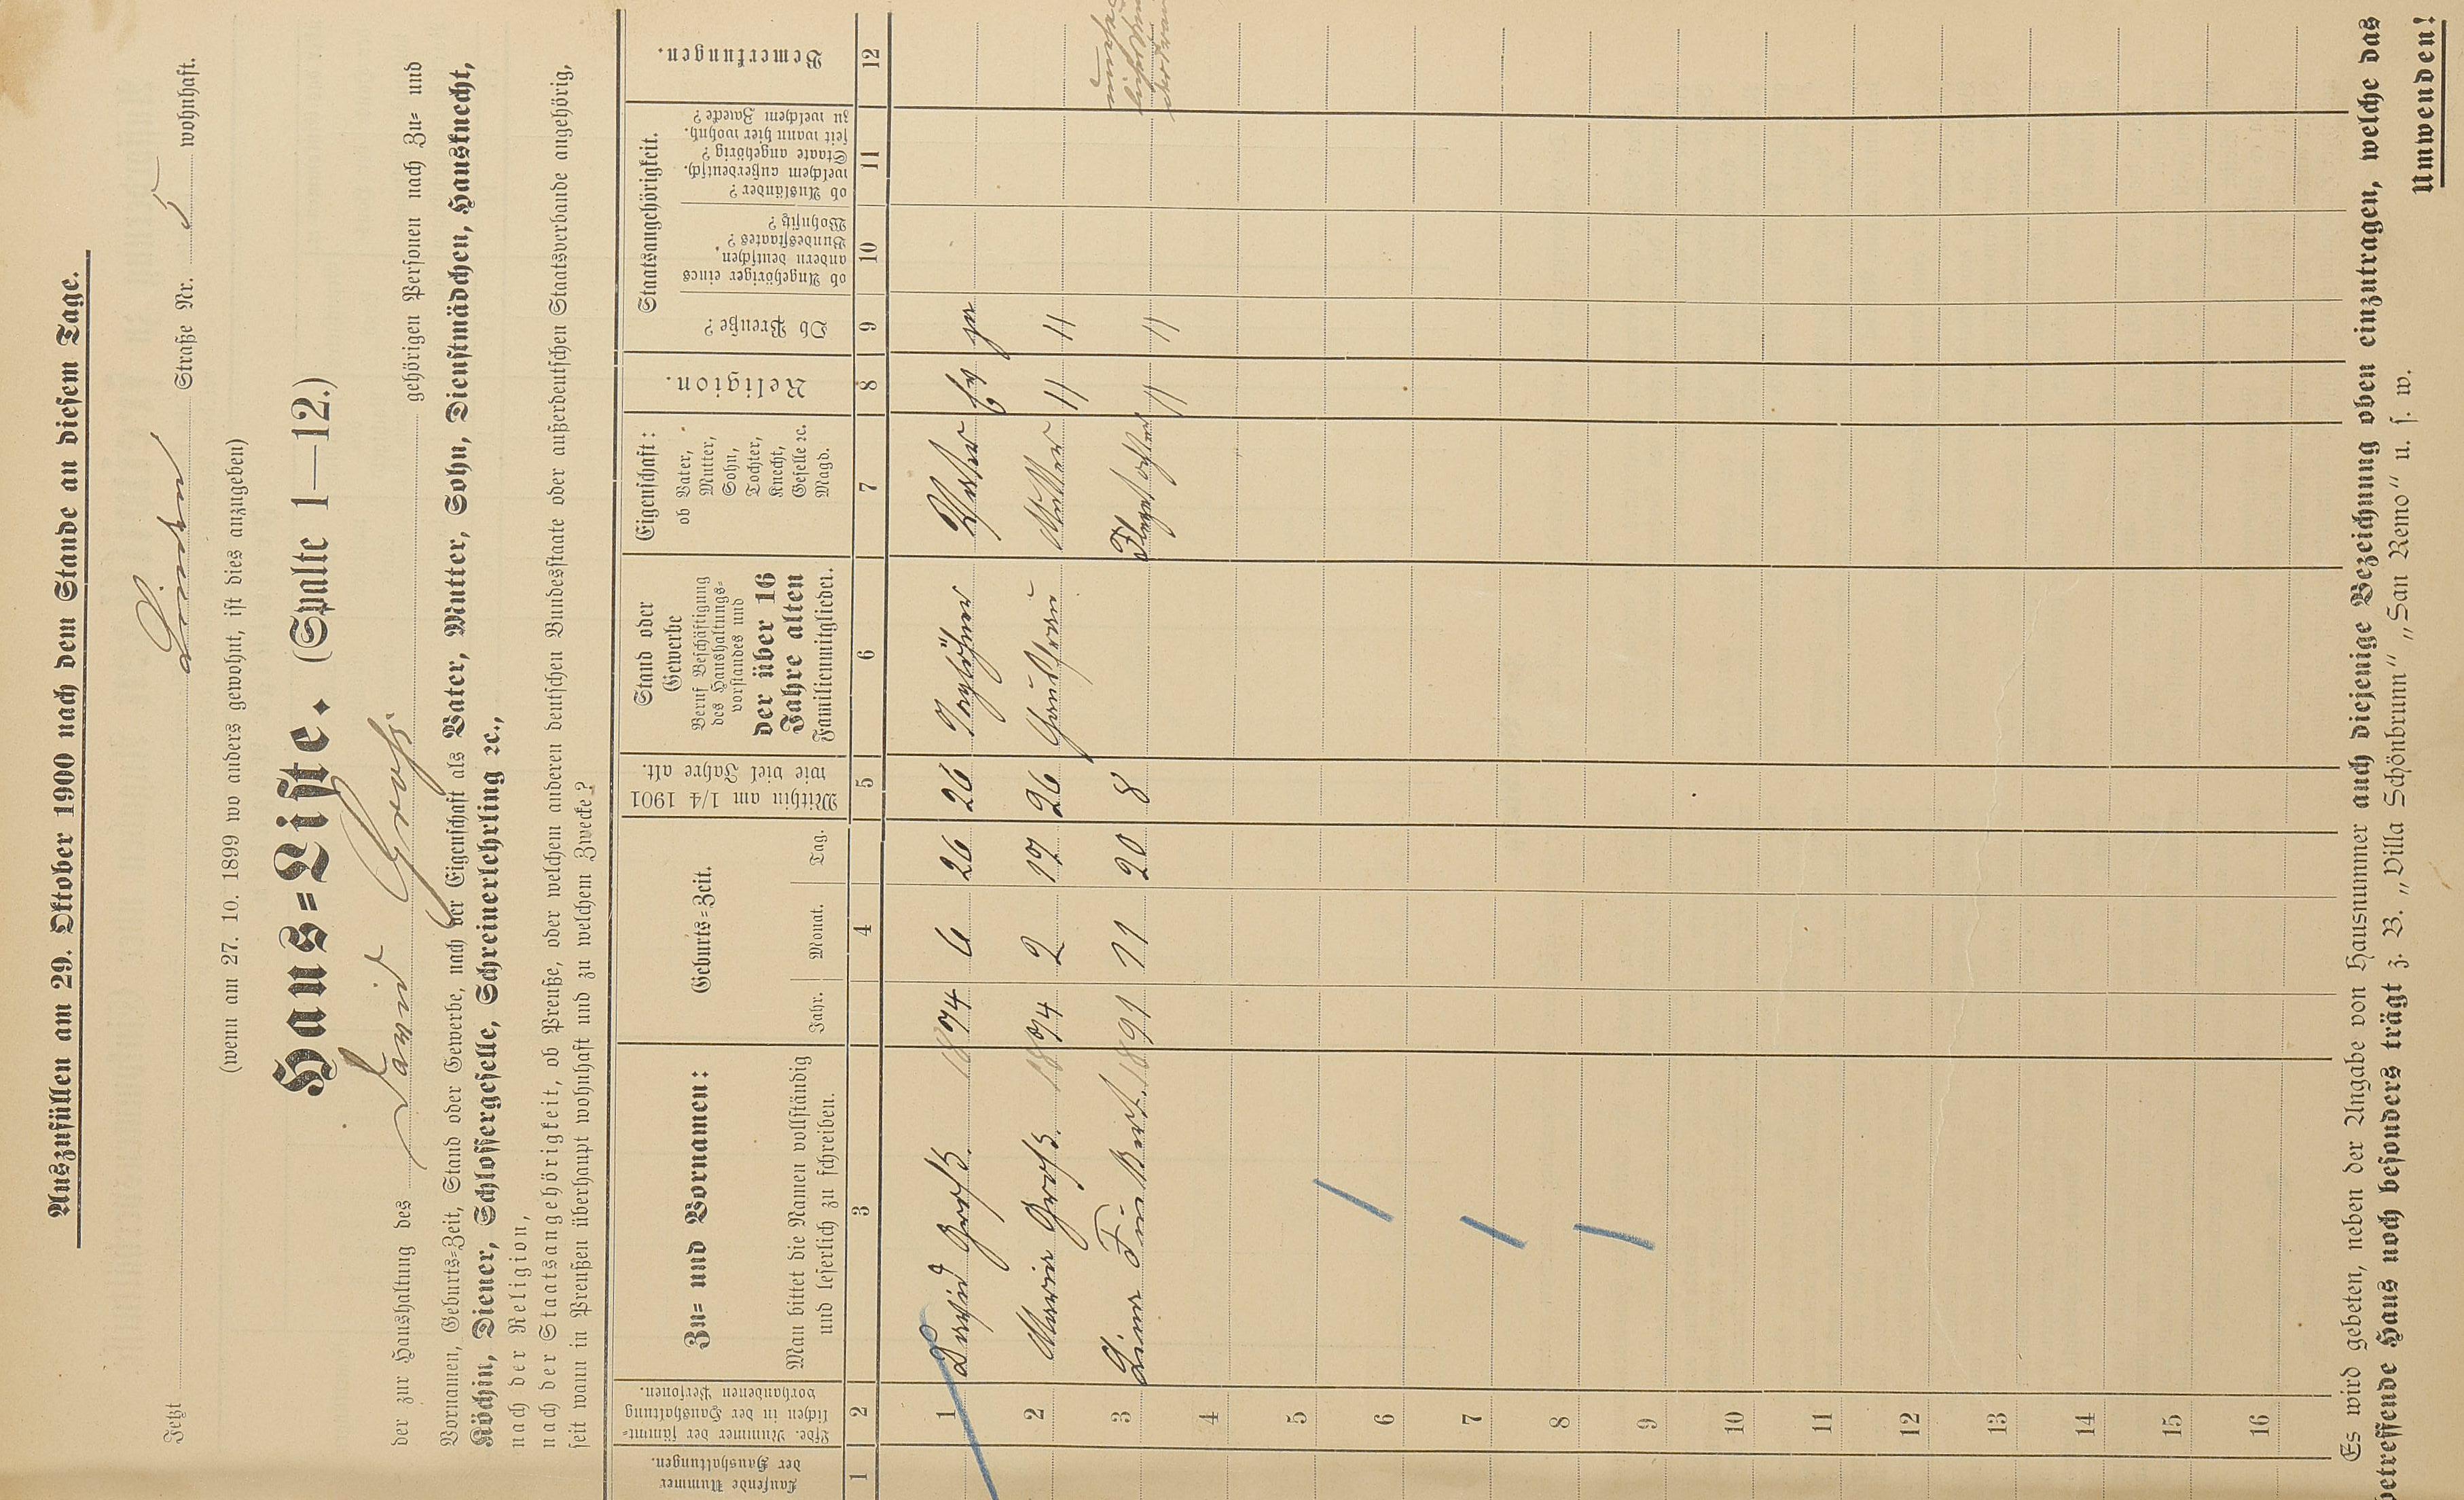 Auszufüllen am 29. Oktober 1900 nach dem Stande an diesem Tage.
Jetzt Linden Straße Nr. 5 wohnhaft.
(wenn am 27. 10. 1899 wo anders gewohnt, ist dies anzugeben)
Haus=Liste. (Spalte 1—12.)
der zur Haushaltung des David Groß gehörigen Personen nach Zu= und
Vornamen, Geburts=Zeit, Stand oder Gewerbe, nach der Eigenschaft als Vater, Mutter, Sohn, Dienstmädchen, Hausknecht,
Köchin, Diener, Schlossergeselle, Schreinerlehrling ꝛc.,
nach der Religion,
nach der Staatsangehörigkeit, ob Preuße, oder welchem anderen deutschen Bundesstaate oder außerdeutschen Staatsverbande angehörig,
seit wann in Preußen überhaupt wohnhaft und zu welchem Zwecke?
Laufende Nummer
der Haushaltungen.
Lfde. Nummer der sämmt=
lichen in der Haushaltung
vorhandenen Personen.
Zu= und Vornamen:
Man bittet die Namen vollständig
und leserlich zu schreiben.
Geburts=Zeit.
Jahr. Monat. Tag.
Mithin am 1/4 1901
wie viel Jahre alt.
Stand oder
Gewerbe
Beruf Beschäftigung
des Haushaltungs=
vorstandes und
der über 16
Jahre alten
Familienmitglieder.
Eigenschaft:
ob Vater,
Mutter,
Sohn,
Tochter,
Knecht,
Geselle ꝛc.
Magd.
Religion.
Staatsangehörigkeit.
Ob Preuße?
ob Angehöriger eines
andern deutschen
Bundesstaates?
Wohnsitz?
ob Ausländer?
welchem außerdeutsch.
Staate angehörig?
seit wann hier wohnh.
zu welchem Zwecke?
Bemerkungen.
1 2 3 4 5 6 7 8 9 10 11 12
1 David Groß. 1874 6 26 26 Taglöhner Vater Ev ja
2 Maria Groß. 1874 2 17 26 Hausfrau Mutter " "
3 Lina 1891 11 20 8 " "
4
5
6
7
8
9
10
11
12
13
14
15
16
Es wird gebeten, neben der Angabe von Hausnummer auch diejenige Bezeichnung oben einzutragen, welche das
betreffende Haus noch besonders trägt z. B. „Villa Schönbrunn" „San Remo" u. s. w.
Umwenden!